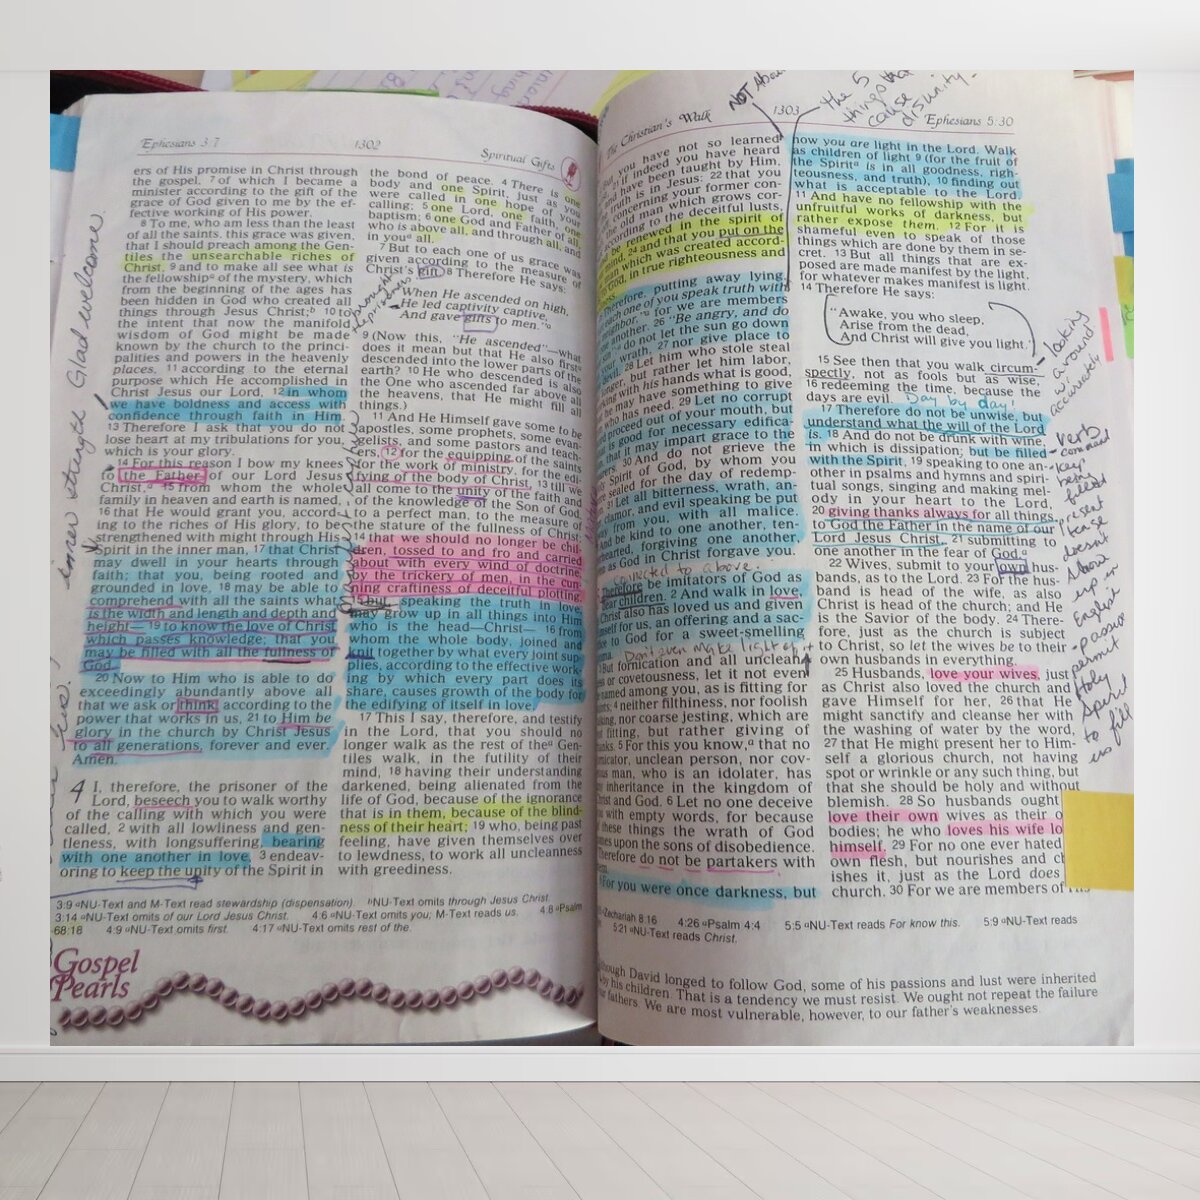 Ephesians 3:7
1302
Spiritual Gifts
ers of His promise in Christ through
the gospel, 7 of which I became a
minister according to the gift of the
grace of God given to me by the ef-
fective working of His power.
8 To me, who am less than the least
of all the saints, this grace was given,
that I should preach among the Gen-
tiles the unsearchable riches of
Christ, 9 and to make all see what is
the fellowshipa of the mystery, which
from the beginning of the ages has
been hidden in God who created all
things through Jesus Christ;b 10 to
the intent that now the manifold
wisdom of God might be made
known by the church to the princi-
palities and powers in the heavenly
places, 11 according to the eternal
purpose which He accomplished in
Christ Jesus our Lord, 12 in whom
we have boldness and access with
confidence through faith in Him.
13 Therefore I ask that you do not
lose heart at my tribulations for you,
which is your glory.
14 For this reason I bow my knees
to the Father of our Lord Jesus
Christ,a 15 from whom the whole
family in heaven and earth is named,
16 that He would grant you, accord-
ing to the riches of His glory, to be
strengthened with might through His
Spirit in the inner man, 17 that Christ
may dwell in your hearts through
faith; that you, being rooted and
grounded in love, 18 may be able to
comprehend with all the saints what
is the width and length and depth and
height— 19 to know the love of Christ
which passes knowledge; that you
may be filled with all the fullness of
God.
20 Now to Him who is able to do
exceedingly abundantly above all
that we ask or think, according to the
power that works in us, 21 to Him be
glory in the church by Christ Jesus
to all generations, forever and ever.
Amen.
4 I, therefore, the prisoner of the
Lord, beseech you to walk worthy
of the calling with which you were
called, 2 with all lowliness and gen-
tleness, with longsuffering, bearing
with one another in love, 3 endeav-
oring to keep the unity of the Spirit in
the bond of peace. 4 There is one
body and one Spirit, just as you
were called in one hope of your
calling; 5 one Lord, one faith, one
baptism; 6 one God and Father of all,
who is above all, and through all, and
in youa all.
7 But to each one of us grace was
given according to the measure of
Christ's gift. 8 Therefore He says:
"When He ascended on high,
He led captivity captive,
And gave gifts to men."a
9 (Now this, "He ascended"—what
does it mean but that He also first
descended into the lower parts of the
earth? 10 He who descended is also
the One who ascended far above all
the heavens, that He might fill all
things.)
11 And He Himself gave some to be
apostles, some prophets, some evan-
gelists, and some pastors and teach-
ers, 12 for the equipping of the saints
for the work of ministry, for the edi-
fying of the body of Christ, 13 till we
all come to the unity of the faith and
of the knowledge of the Son of God,
to a perfect man, to the measure of
the stature of the fullness of Christ;
14 that we should no longer be chil-
dren, tossed to and fro and carried
about with every wind of doctrine,
by the trickery of men, in the cun-
ning craftiness of deceitful plotting,
15 but, speaking the truth in love,
may grow up in all things into Him
who is the head—Christ— 16 from
whom the whole body, joined and
knit together by what every joint sup-
plies, according to the effective work-
ing by which every part does its
share, causes growth of the body for
the edifying of itself in love.
17 This I say, therefore, and testify
in the Lord, that you should no
longer walk as the rest of thea Gen-
tiles walk, in the futility of their
mind, 18 having their understanding
darkened, being alienated from the
life of God, because of the ignorance
that is in them, because of the blind-
ness of their heart; 19 who, being past
feeling, have given themselves over
to lewdness, to work all uncleanness
with greediness.
3:9 aNU-Text and M-Text read stewardship (dispensation). bNU-Text omits through Jesus Christ.
3:14 aNU-Text omits of our Lord Jesus Christ. 4:6 aNU-Text omits you; M-Text reads us. 4:8 aPsalm
68:18 4:9 aNU-Text omits first. 4:17 aNU-Text omits rest of the.
Gospel
Pearls
inner strength
Glad welcome
The Christian's Walk
1303
Ephesians 5:30
NOT About
the 5
things that
cause
disunity.
you have not so learned
if indeed you have heard
have been taught by Him,
truth is in Jesus: 22 that you
concerning your former con-
old man which grows cor-
according to the deceitful lusts,
be renewed in the spirit of
mind, 24 and that you put on the
man which was created accord-
God, in true righteousness and
Therefore, putting away lying,
each one of you speak truth with
neighbor," for we are members
another. 26 "Be angry, and do
do not let the sun go down
wrath, 27 nor give place to
devil. 28 Let him who stole steal
longer, but rather let him labor,
with his hands what is good,
may have something to give
who has need. 29 Let no corrupt
proceed out of your mouth, but
is good for necessary edifica-
that it may impart grace to the
30 And do not grieve the
Spirit of God, by whom you
sealed for the day of redemp-
31 Let all bitterness, wrath, an-
clamor, and evil speaking be put
from you, with all malice.
And be kind to one another, ten-
forgiving one another,
as God in Christ forgave you.
connected to above.
Therefore be imitators of God as
dear children. 2 And walk in love,
Christ also has loved us and given
Himself for us, an offering and a sac-
to God for a sweet-smelling
Don't even make light of it
But fornication and all uncleanness
or covetousness, let it not even
named among you, as is fitting for
4 neither filthiness, nor foolish
nor coarse jesting, which are
fitting, but rather giving of
thanks. 5 For this you know,a that no
fornicator, unclean person, nor cov-
man, who is an idolater, has
inheritance in the kingdom of
Christ and God. 6 Let no one deceive
with empty words, for because
these things the wrath of God
comes upon the sons of disobedience.
Therefore do not be partakers with
For you were once darkness, but
now you are light in the Lord. Walk
as children of light 9 (for the fruit of
the Spirita is in all goodness, righ-
teousness, and truth), 10 finding out
what is acceptable to the Lord.
11 And have no fellowship with the
unfruitful works of darkness, but
rather expose them. 12 For it is
shameful even to speak of those
things which are done by them in se-
cret. 13 But all things that are ex-
posed are made manifest by the light,
for whatever makes manifest is light.
14 Therefore He says:
"Awake, you who sleep,
Arise from the dead,
And Christ will give you light."
15 See then that you walk circum-
spectly, not as fools but as wise,
16 redeeming the time, because the
days are evil. Day by day!
17 Therefore do not be unwise, but
understand what the will of the Lord
is. 18 And do not be drunk with wine,
in which is dissipation; but be filled
with the Spirit, 19 speaking to one an-
other in psalms and hymns and spiri-
tual songs, singing and making mel-
ody in your heart to the Lord,
20 giving thanks always for all things
to God the Father in the name of our
Lord Jesus Christ, 21 submitting to
one another in the fear of God.a
22 Wives, submit to your own hus-
bands, as to the Lord. 23 For the hus-
band is head of the wife, as also
Christ is head of the church; and He
is the Savior of the body. 24 There-
fore, just as the church is subject
to Christ, so let the wives be to their
own husbands in everything.
25 Husbands, love your wives, just
as Christ also loved the church and
gave Himself for her, 26 that He
might sanctify and cleanse her with
the washing of water by the word,
27 that He might present her to Him-
self a glorious church, not having
spot or wrinkle or any such thing, but
that she should be holy and without
blemish. 28 So husbands ought
love their own wives as their o
bodies; he who loves his wife lo
himself. 29 For no one ever hated
own flesh, but nourishes and ch
ishes it, just as the Lord does
church. 30 For we are members of His
looking
around
w/
accuracy
verb
- command
- keep
being
filled
present
tense
doesn't
show
up in
English
- passive
permit
Holy
Spirit
to fill
us
Zechariah 8:16 4:26 aPsalm 4:4 5:5 aNU-Text reads For know this. 5:9 aNU-Text reads
5:21 aNU-Text reads Christ.
though David longed to follow God, some of his passions and lust were inherited
by his children. That is a tendency we must resist. We ought not repeat the failure
fathers. We are most vulnerable, however, to our father's weaknesses.